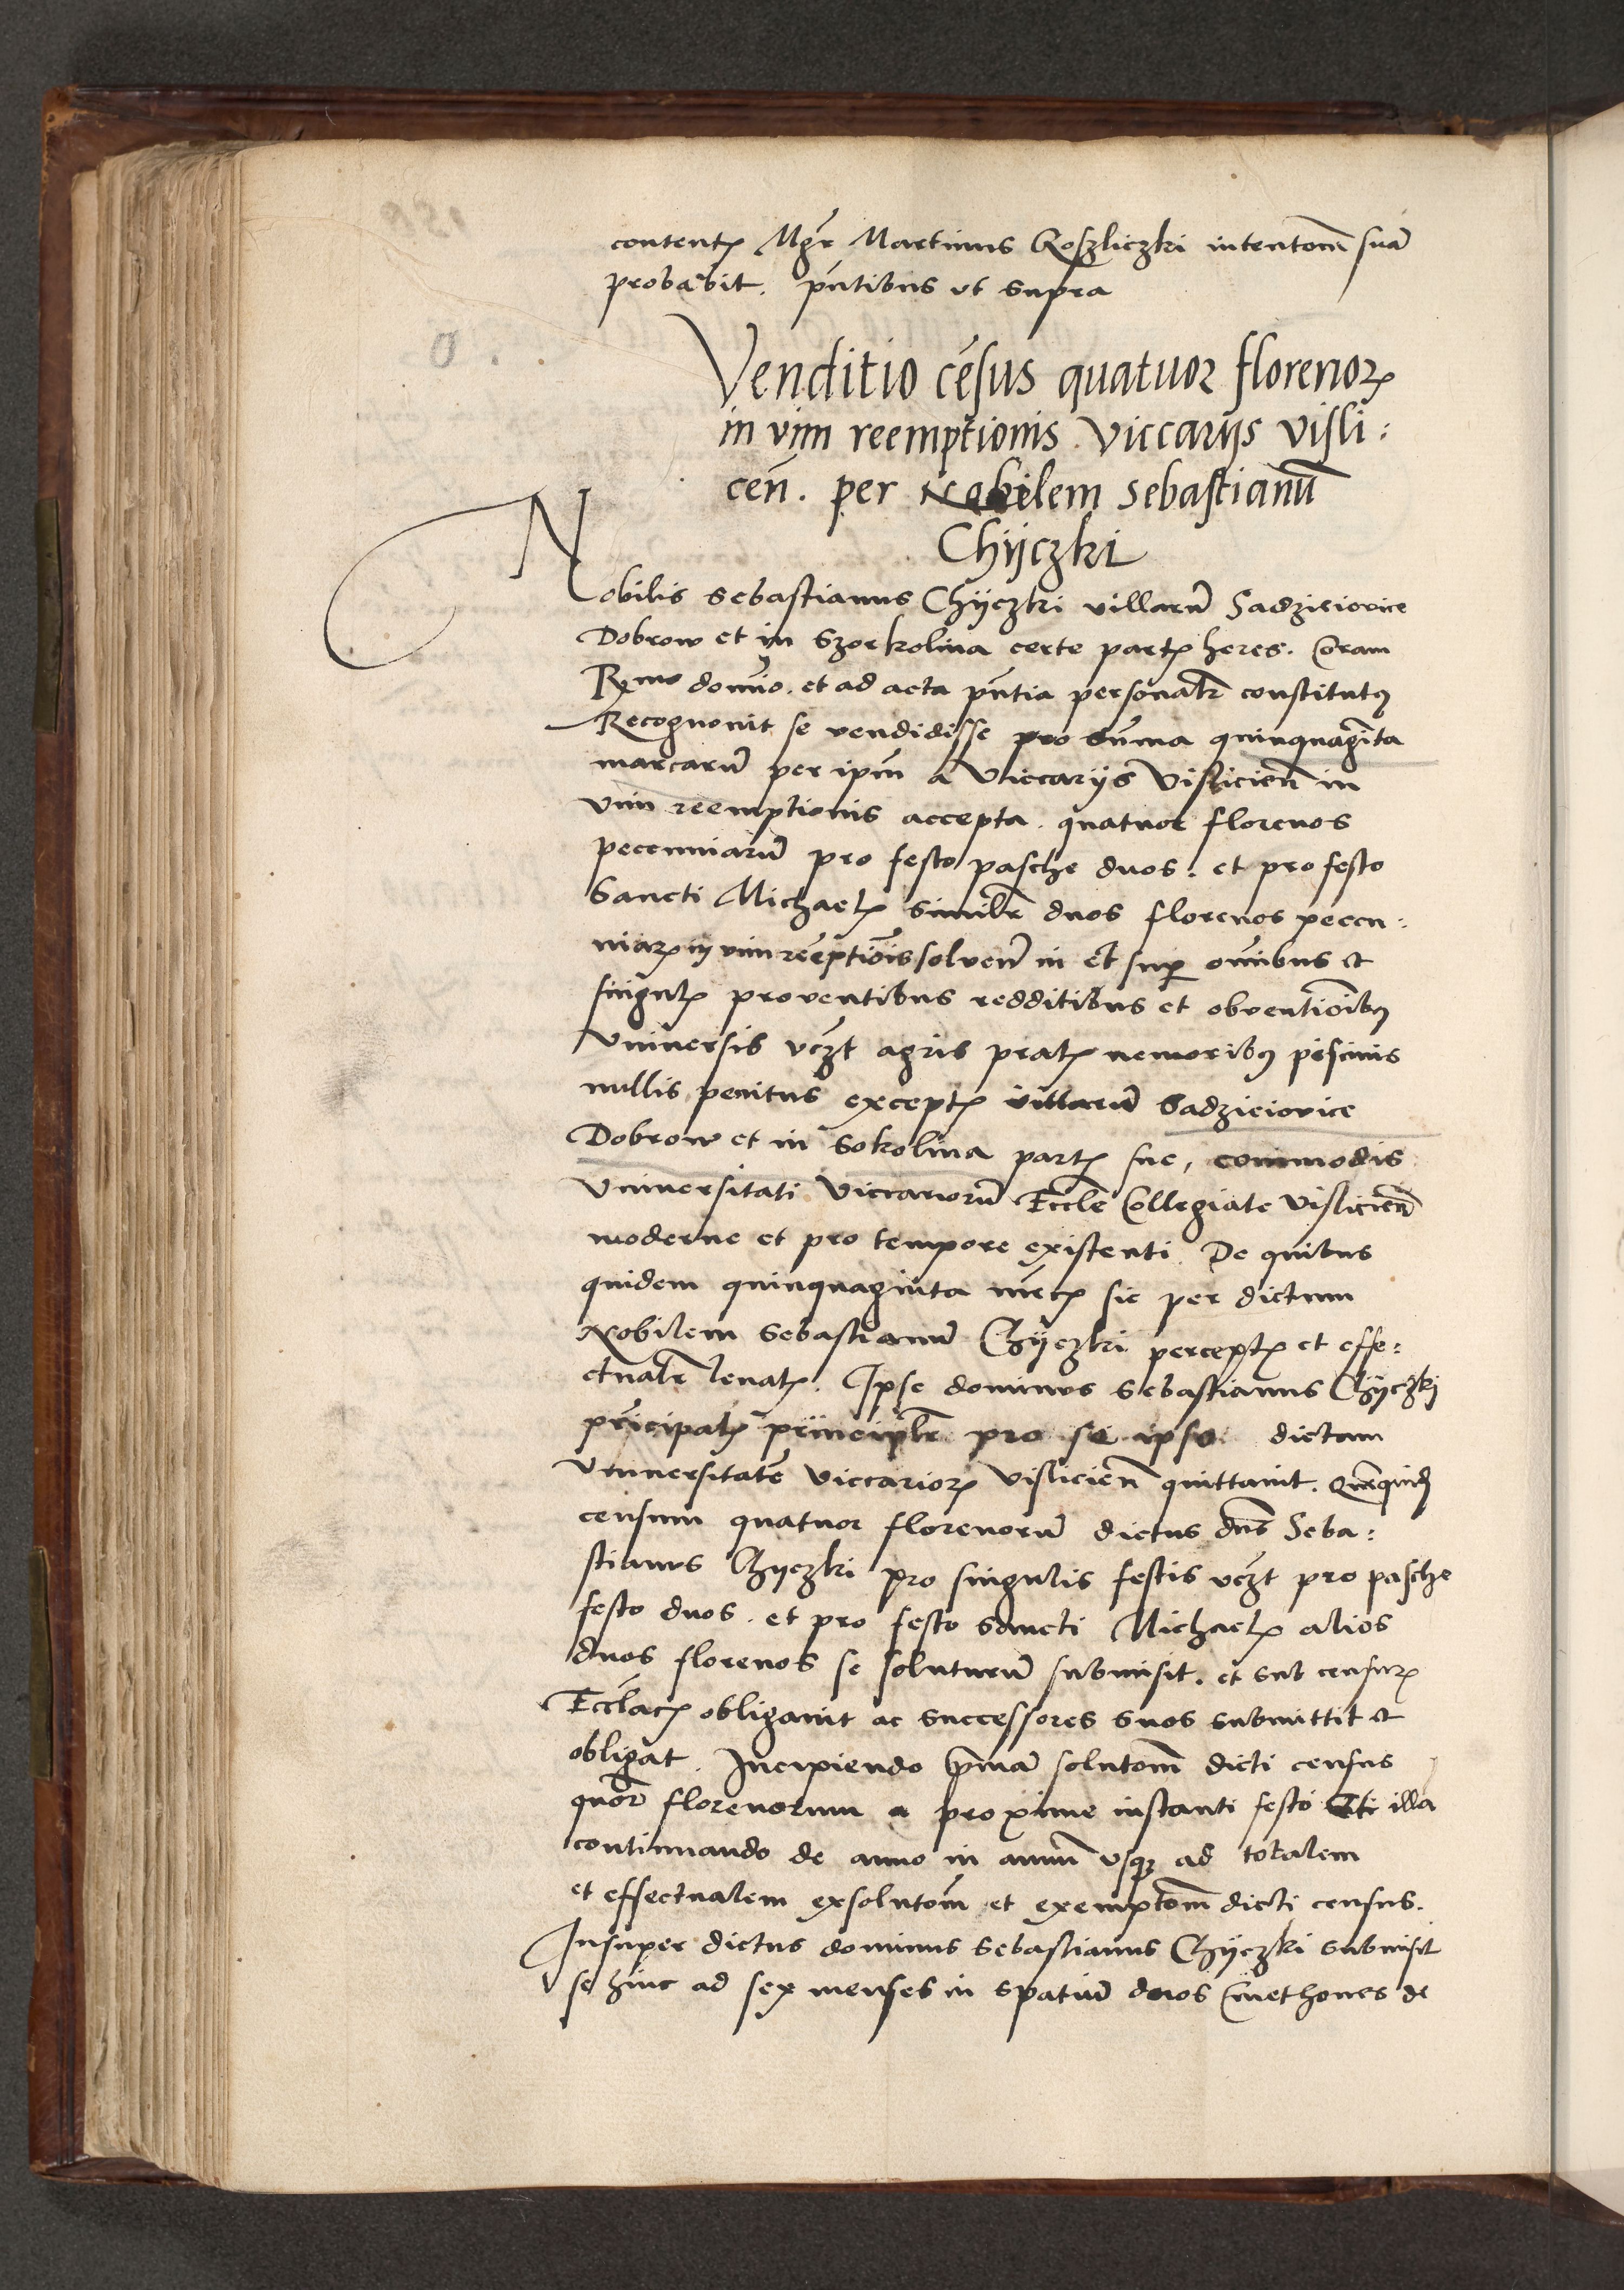 contentꝭ Mgr̃ Martinus Koszliczki intentonẽ suã
probabit. pn̄tibus ut supra
Venditio cẽsus quatuor florenoꝝ
in vim reemptionis Viccarijs visli:
ceñ. per Nobilem Sebastianũ
Chijczki
Nobilis Sebastianus Chijczki villarũ Sadzieiovice
Dobrow et in Szorkolina certe partꝭ heres. Coram
R̃mo domĩo. et ad acta pn̄tia personalr̃ constitutꝰ
Recognouit se vendidisse pro sũma quinquagĩta
marcarũ per ip̃m a Viccarijs Visliciẽn in
vim reemptionis accepta. quatuor florenos
peccuniarũ pro festo pasche duos. et pro festo
Sancti Michaelꝭ similr̃ duos florenos peccu:
niaꝝ in vim reẽptiõis solvẽn in et sup̃ om̃ibus et
singulꝭ proventibus redditibus et obventiõibꝰ
Vniversis vcz̃t agris pratꝭ nemoribꝰ piscinis
nullis penitus exceptꝭ villarũ Sadzieiovice
Dobrow et in Sokolina partꝭ sue, commodis
Vniversitati Viccariorũ Eccl̃e Collegiate Visliciẽn
moderne et pro tempore existenti. De quibus
quidem quinquaginta mr̃cꝭ sic per dictum
Nobilem Sebastianũ Chijczki perceptꝭ et effe:
ctualr̃ leuatꝭ. Ipse dominus Sebastianus Chijczki
prı̃cipalꝭ principlr̃ pro se ipso dictam
Vniuersitatẽ Viccarioꝝ Visliciẽn quittauit. Quẽquid̃
censum quatuor florenorũ dictus dñs Seba:
stianus Chijczki pro singulis festis vcz̃t pro pasche
festo duos. et pro festo Sancti Michaelꝭ alios
duos florenos se soluturũ submisit. et sub censurꝭ
Eccl̃acꝭ obligauit ac successores suos submittit et
obligat. Incipiendo p̃mã solutonẽ dicti census
quõr florenorum a proxime instanti festo Et illa
continuando de anno in annũ vsqꝫ ad totalem
et effectualem exsolutonẽ et exemptonẽ dicti census.
Insuper dictus dominus Sebastianus Chijczki submisit
se hinc ad sex menses in spatiũ duos Cmethones de